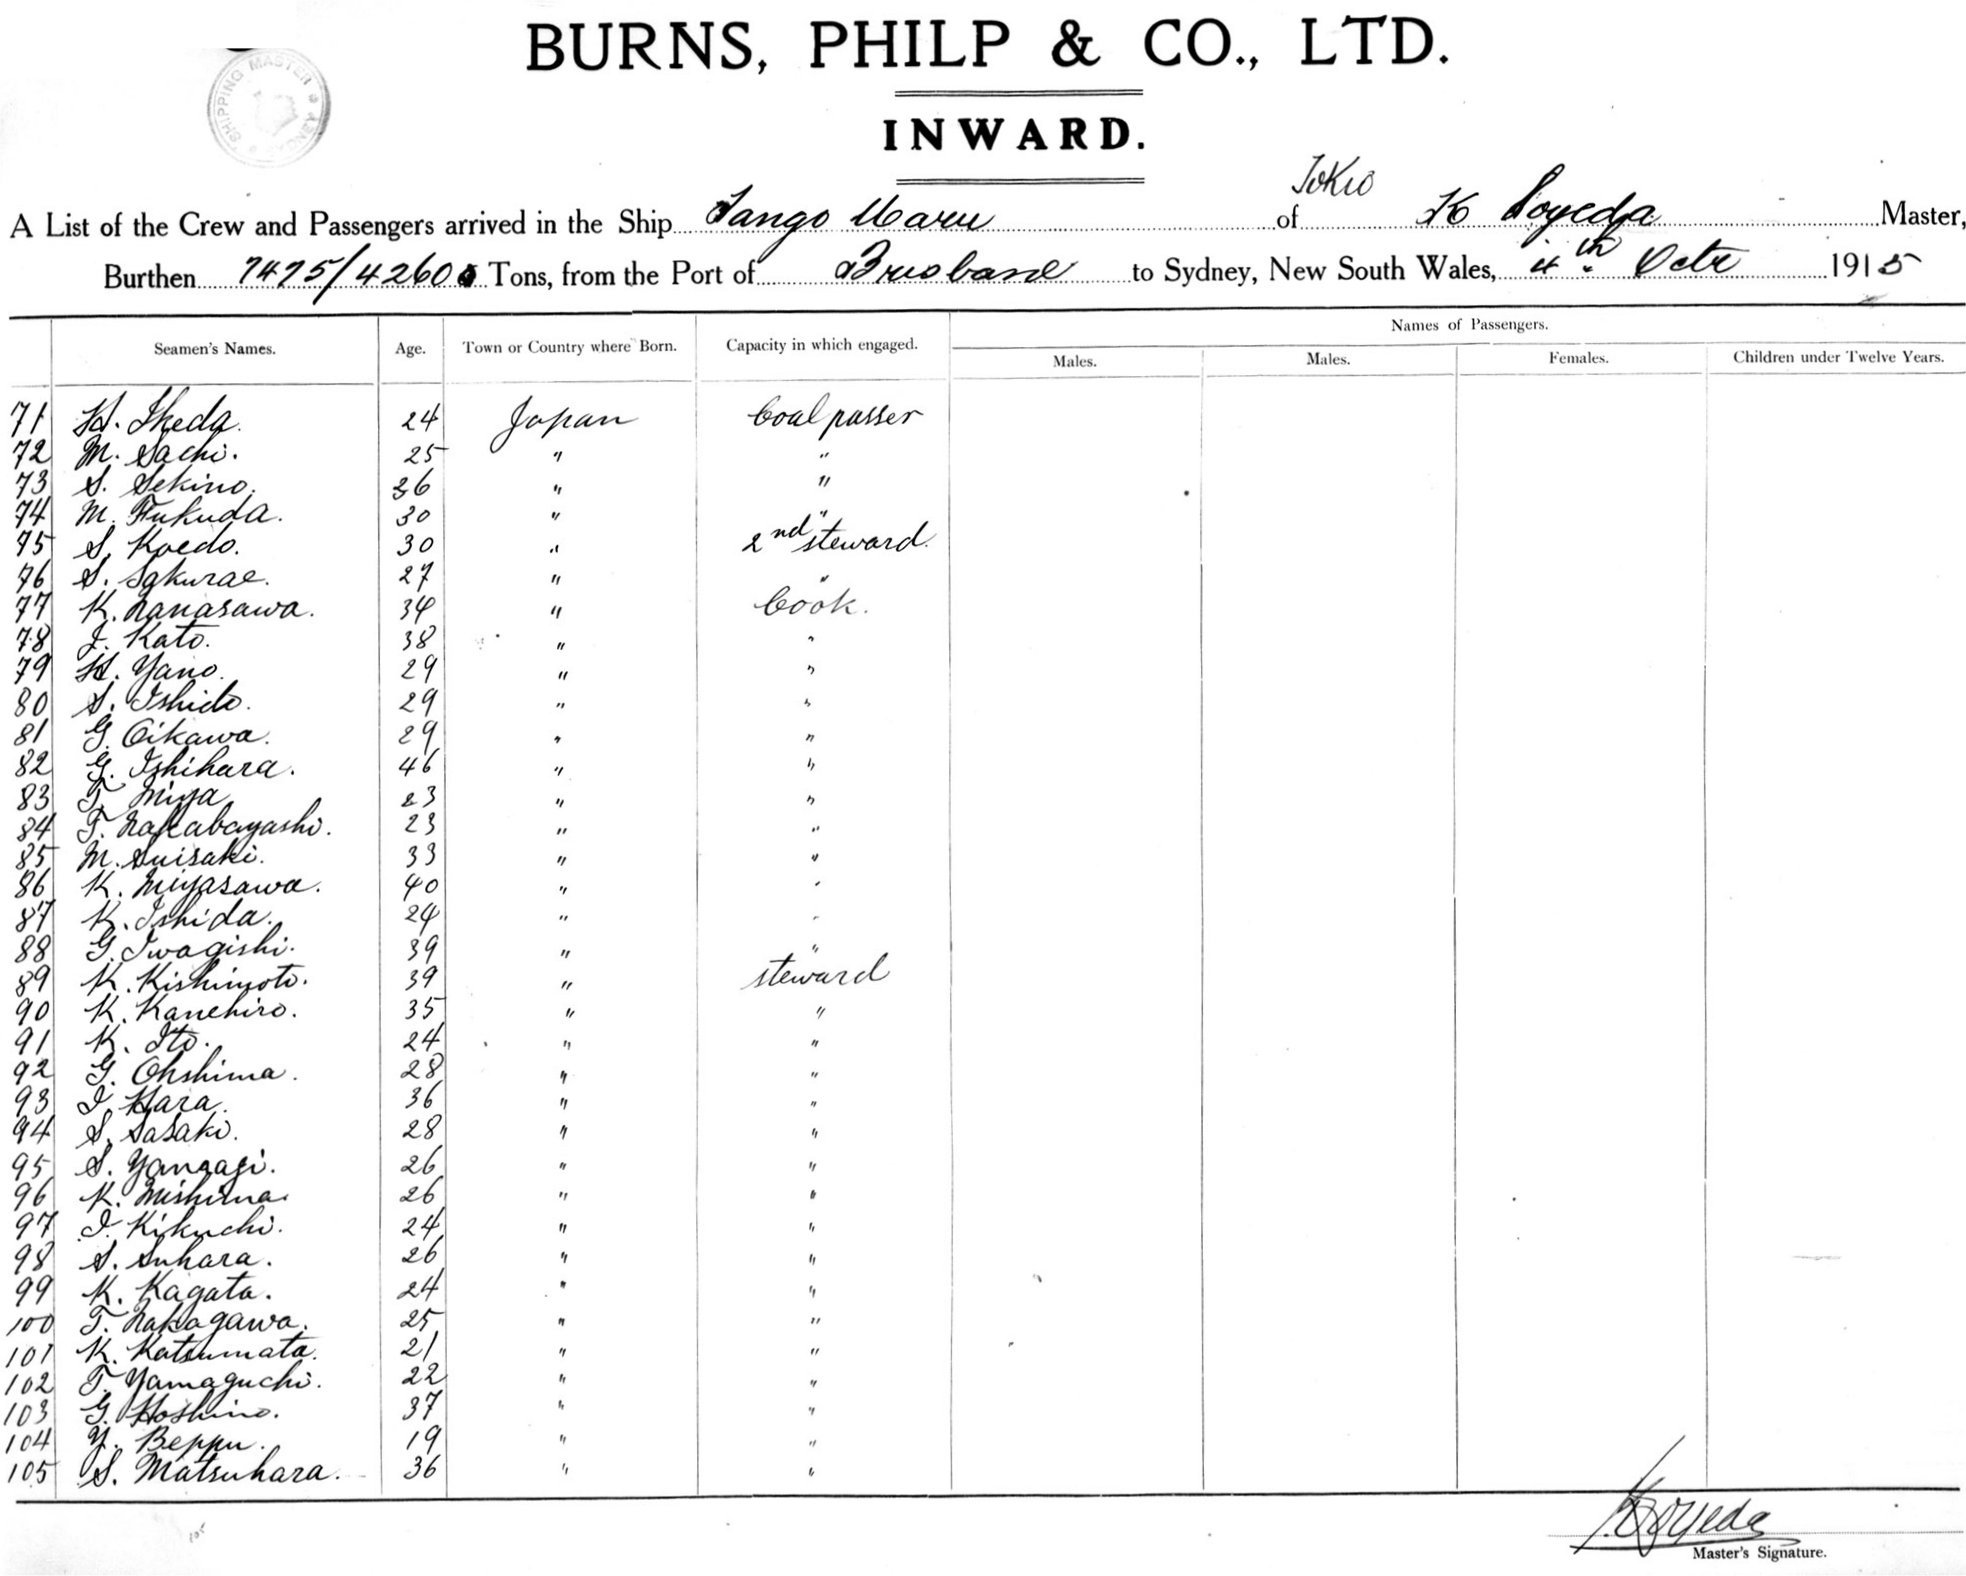 BURNS, PHILP & CO., LTD.
SHIPPING MASTER * SYDNEY *
INWARD.
Tokio
A List of the Crew and Passengers arrived in the Ship Tango Maru of K Soyeda Master,
Burthen 7475/4260 Tons, from the Port of Brisbane to Sydney, New South Wales, 4th Octr 1915
Names of Passengers.
Seamen's Names. Age. Town or Country where Born. Capacity in which engaged. Males. Males. Females. Children under Twelve Years.
71 H. Ikeda. 24 Japan Coal passer
72 M. Sachi. 25 " "
73 S. Sekino. 36 " "
74 M. Fukuda. 30 " "
75 S. Koedo. 30 " 2nd steward.
76 S. Sakurae. 27 " "
77 K. Nanasawa. 34 " Cook.
78 I. Kato. 38 " "
79 H. Yano. 29 " "
80 S. Ishido. 29 " "
81 G. Oikawa. 29 " "
82 G. Ishihara. 46 " "
83 T. Miya 23 " "
84 T. Nakabayashi. 23 " "
85 M. Suisaki. 33 " "
86 K. Miyasawa. 40 " "
87 K. Ishida. 24 " "
88 G. Iwagishi. 39 " "
89 K. Kishimoto. 39 " steward
90 K. Kanehiro. 35 " "
91 K. Ito. 24 " "
92 G. Ohshima. 28 " "
93 I. Hara. 36 " "
94 S. Sasaki. 28 " "
95 S. Yanagi. 26 " "
96 K. Mishima. 26 " "
97 I. Kikuchi. 24 " "
98 S. Suhara. 26 " "
99 K. Kagata. 24 " "
100 T. Nakagawa. 25 " "
101 K. Katsumata. 21 " "
102 T. Yamaguchi. 22 " "
103 G. Hoshino. 37 " "
104 Y. Beppu. 19 " "
105 S. Matsuhara. 36 " "
105
K Soyeda
Master's Signature.